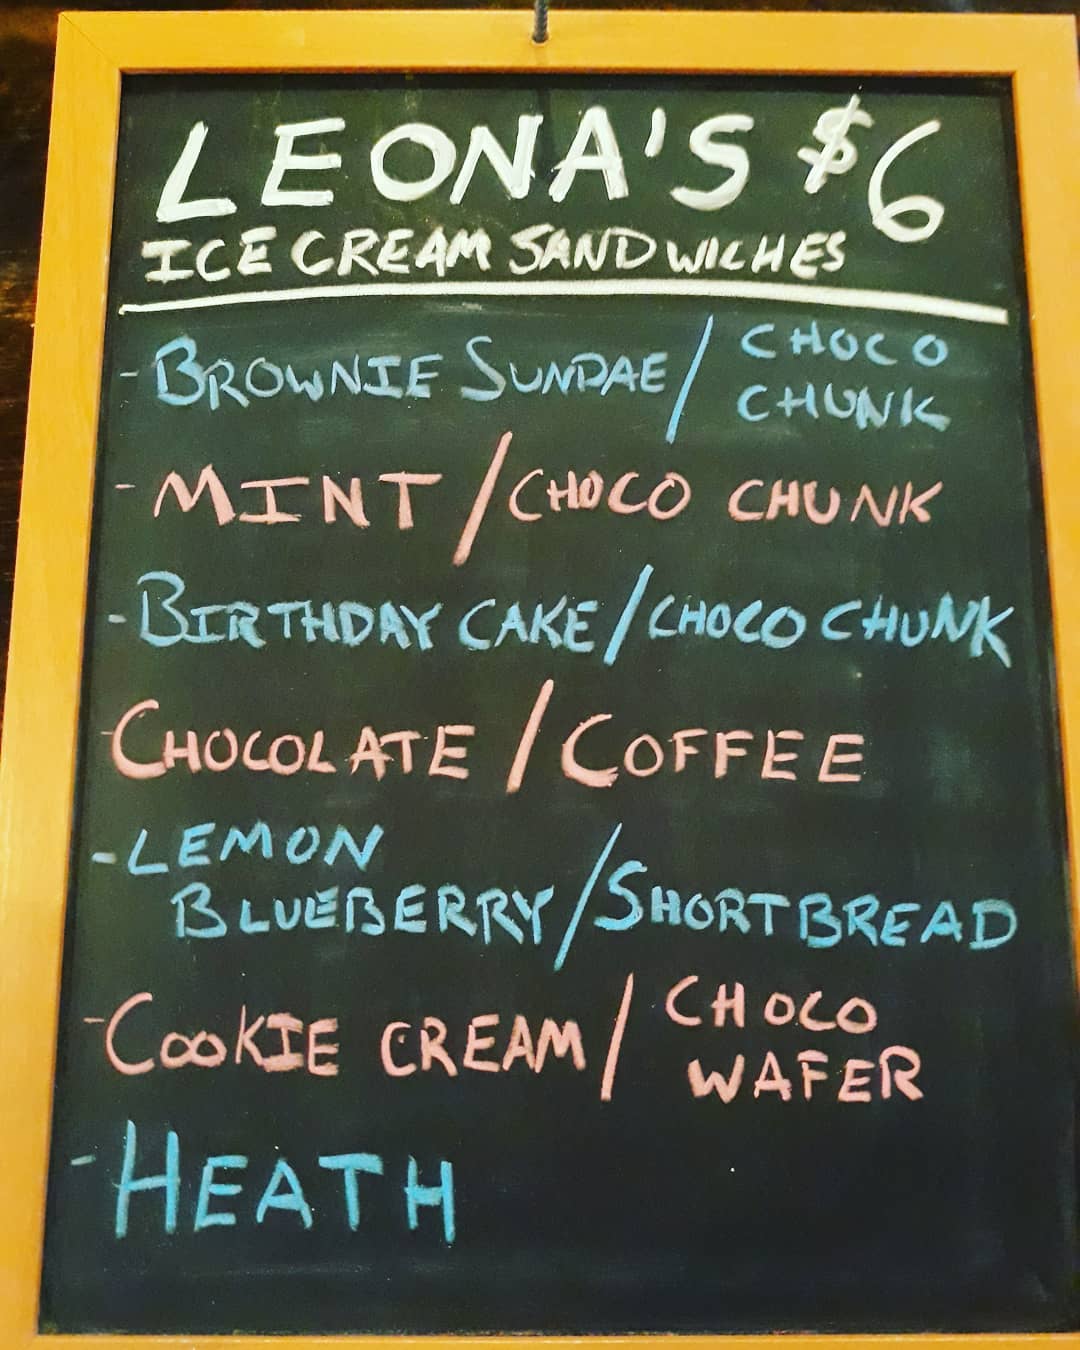 LEONA'S $6
ICE CREAM SANDWICHES
- BROWNIE SUNDAE / CHOCO CHUNK
- MINT / CHOCO CHUNK
- BIRTHDAY CAKE / CHOCO CHUNK
- CHOCOLATE / COFFEE
- LEMON
BLUEBERRY / SHORTBREAD
- COOKIE CREAM / CHOCO WAFER
- HEATH